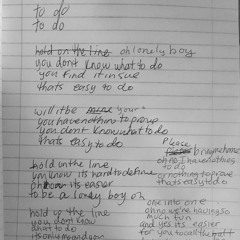 to do
to do
hold on the line oh lonely boy
you dont know what to do
you find it in sue
thats easy to do
will it be mine your
you have nothing to prove
you dont know what to do
thats easy to do
hold on the line
you know its hard to define
oh its easier
to be a lonely boy oh
hold on the line
you dont know
what to do
its only me and you
Please
bring me home
oh no i have nothing
to do
or nothing to prove
thats easy to do
one into one
oh no we're having so
much fun
and yes its easier
for you to call the